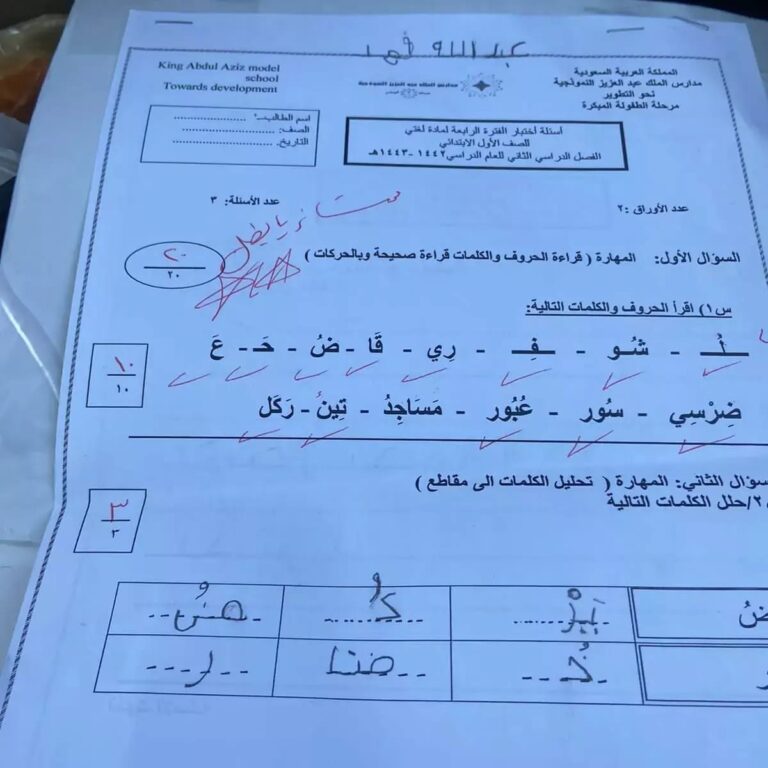 عبد الله فهد
المملكة العربية السعودية
مدارس الملك عبد العزيز النموذجية
نحو التطوير
مرحلة الطفولة المبكرة
King Abdul Aziz model
school
Towards development
أسئلة أختبار الفترة الرابعة لمادة لغتي
للصف الأول الابتدائي
الفصل الدراسي الثاني للعام الدراسي ١٤٤٢-١٤٤٣هـ
اسم الطالب:
الصف:
التاريخ.
عدد الأوراق :٢
عدد الأسئلة: ٣
ممتاز يابطل
السؤال الأول: المهارة ( قراءة الحروف والكلمات قراءة صحيحة وبالحركات )
٢٠
٢٠
س١) اقرأ الحروف والكلمات التالية:
شُو - فِـ - رِي - قَا - ضُ - حَـ - عَ
١٠
١٠
ضِرْسِي - سُور - عُبُور - مَسَاجِدُ - تِينُ - رَكَل
سؤال الثاني: المهارة ( تحليل الكلمات الى مقاطع )
٢/حلل الكلمات التالية
٣
٣